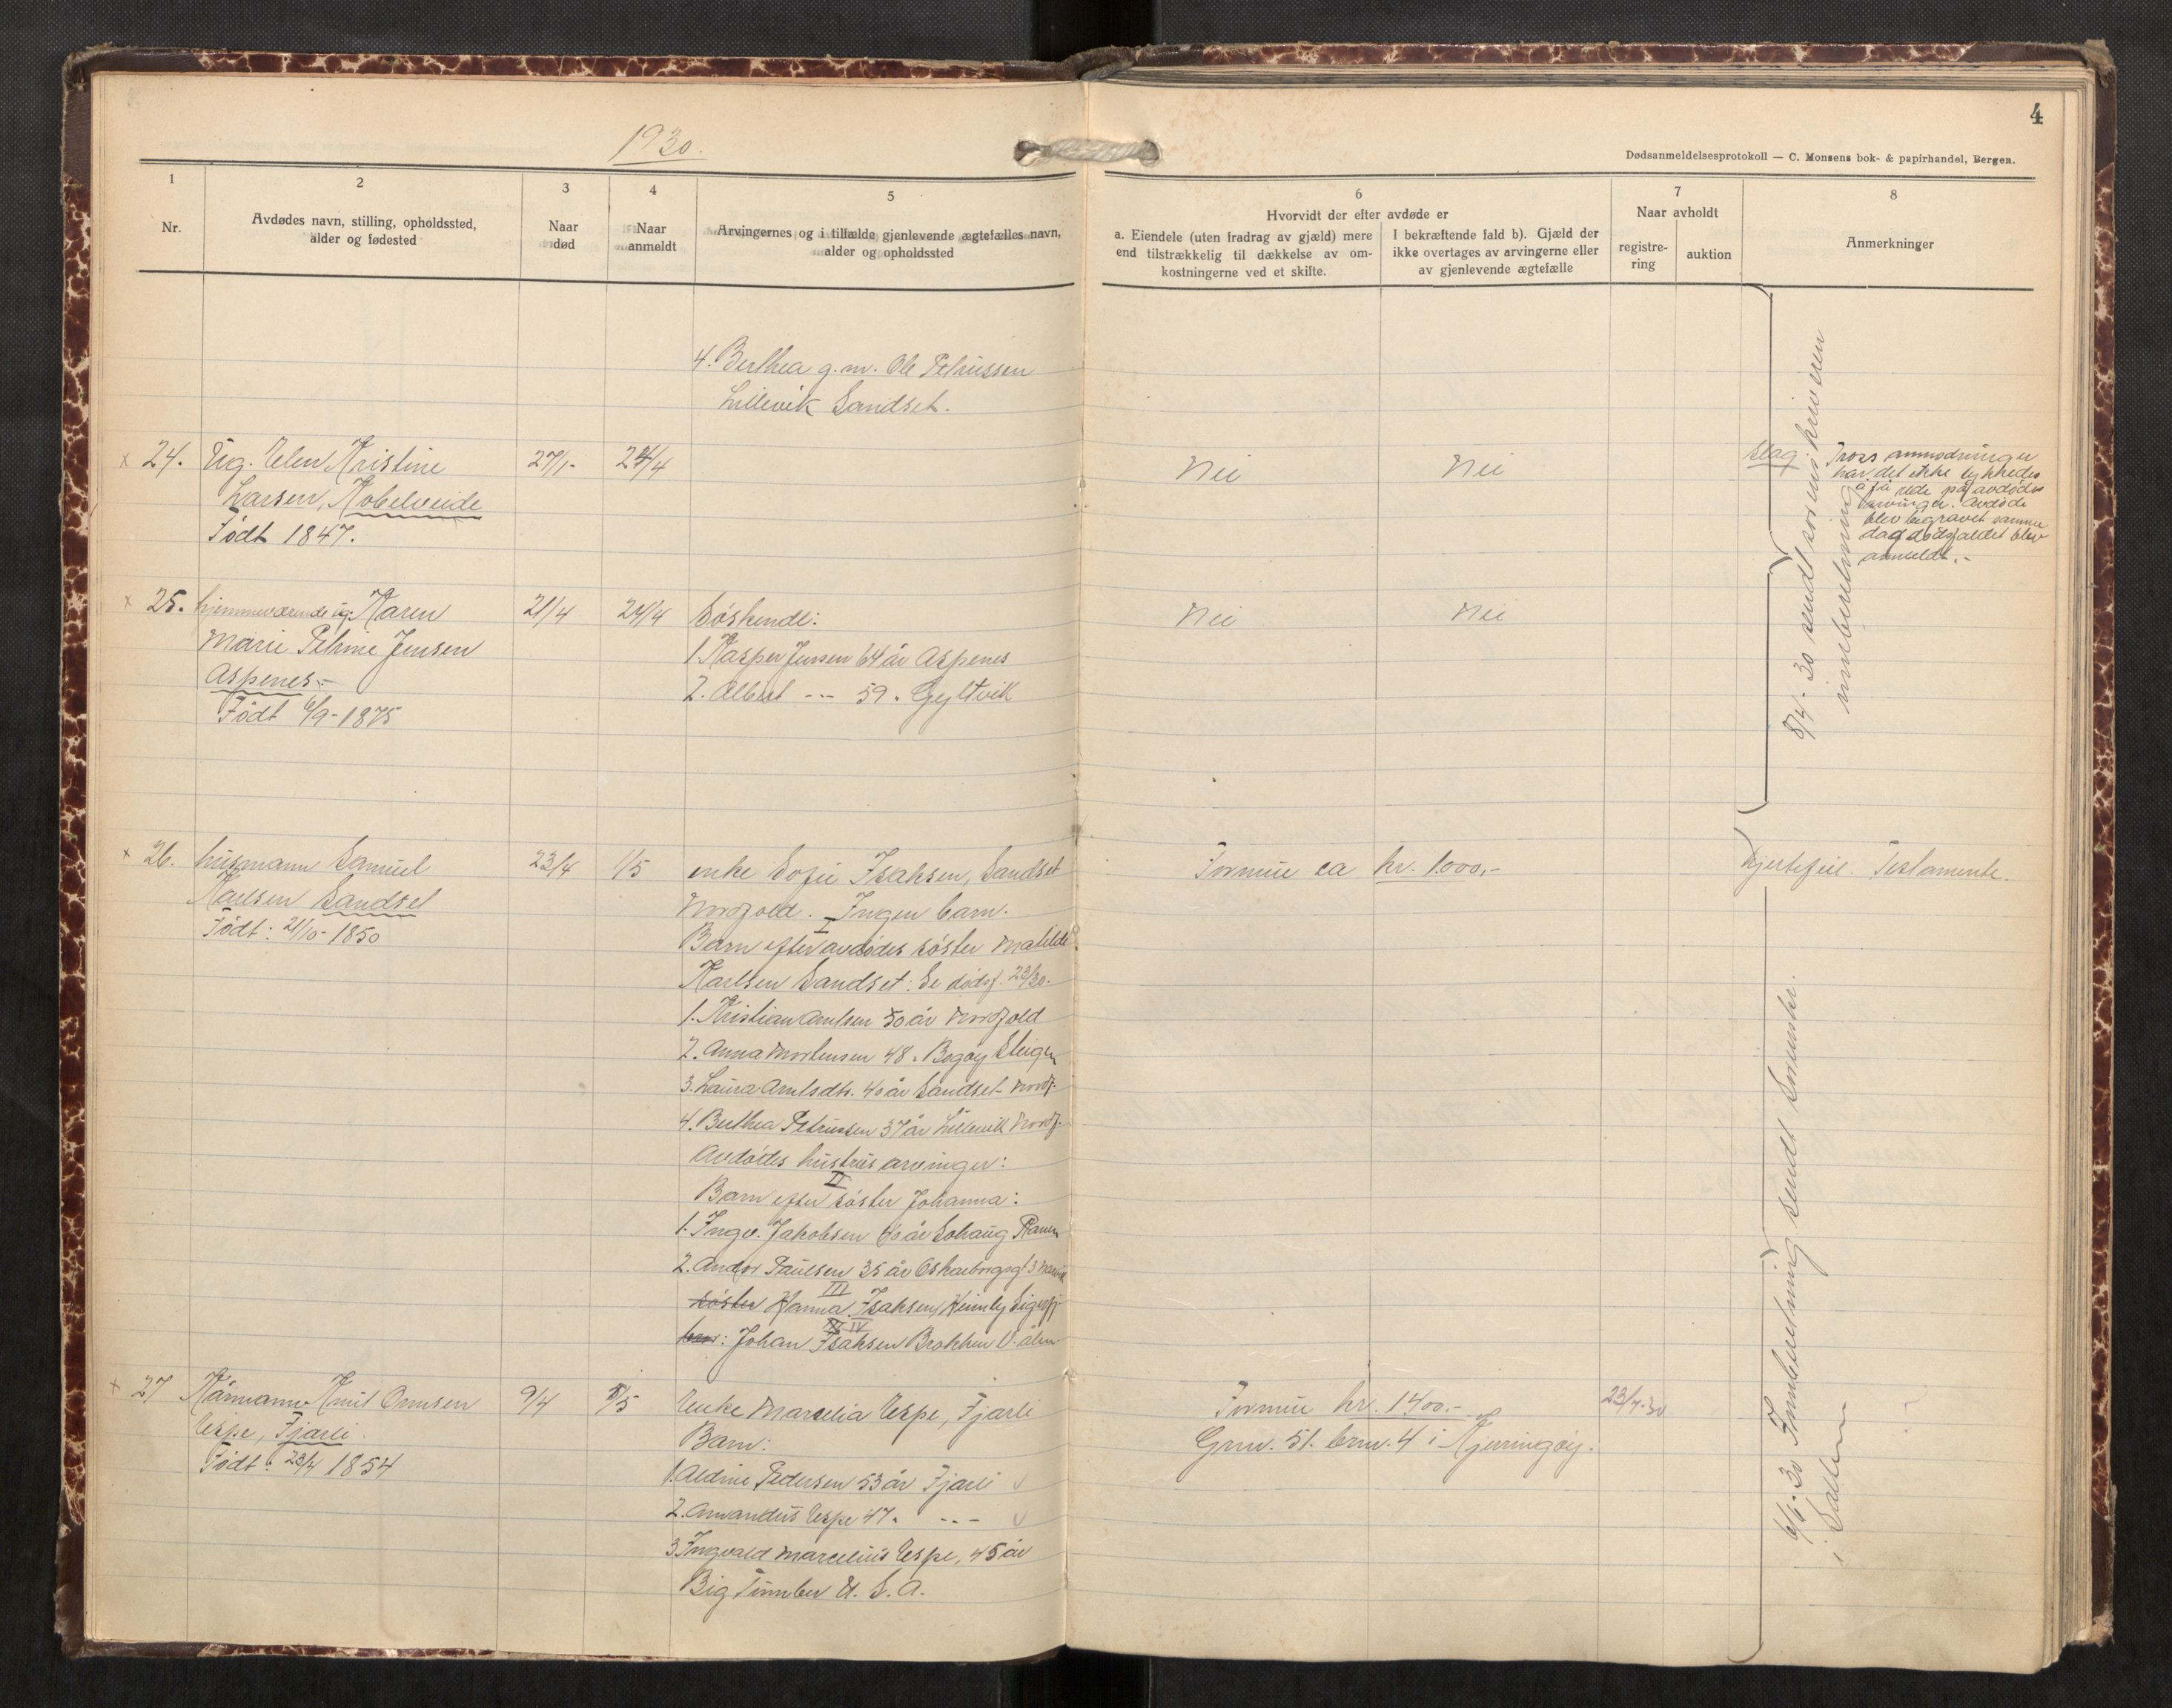 4
1930.
Dødsanmeldelsesprotokoll — C. Monsens bok- & papirhandel, Bergen.
1
2
3
4
5
6
7
8
Nr.
Avdødes navn, stilling, opholdssted,
alder og fødested
Naar
død
Naar
anmeldt
Arvingernes og i tilfælde gjenlevende ægtefælles navn,
alder og opholdssted
Hvorvidt der efter avdøde er
a. Eiendele (uten fradrag av gjæld) mere
end tilstrækkelig til dækkelse av om-
kostningerne ved et skifte.
I bekræftende fald b). Gjæld der
ikke overtages av arvingerne eller
av gjenlevende ægtefælle
Naar avholdt
registre-
ring
auktion
Anmerkninger
4. Berthea g.m. Ole Petrussen
Lillevik Sandset.
x 24. Ug. Elen Kristine
Larsen, Kobelveide
Født 1847.
27/1-
24/4
Nei
Nei
Slag.
Tross anmodninger
har det ikke lykkedes
å få rede på avdødes
arvinger. Avdøde
blev begravet samme
dag dødsfaldet blev
anmeldt.-
x 25. hjemmeværende ug. Karen
Marie Petrine Jensen
Aspenes.-
Født 6/9-1875
21/4
24/4
Søskende:
1. Kasper Jensen 64 år Aspenes
2. Albert --- 59 " Gyltvik
Nei
Nei
8/4-30 sendt sorenskriveren
innberetning
x 26. husmann Samuel
Karlsen Sandset
Født: 21/10-1850
23/4
1/5
enke Sofie Isaksen, Sandset
Nordfold. Ingen barn.
I
Barn efter avdødes søster Matelde
Karlsen Sandset: Se dødsf. 23/30.
1. Kristian Arntsen 50 år Nordfold
2. Anna Mortensen 48 " Bogøy Steigen
3. Laura Arntsdtr. 40 år Sandset Nordf.
4. Berthea Petrussen 37 år Lillevik Nordf.
Avdødes hustrus arvinger:
II
Barn efter søster Johanna:
1. Ingv. Jakobsen 40 år Sohaug Ranen
2. Andor Paulsen 35 år Oskarborgsgt 3 Narvik
III
søster Hanna Isaksen, Heimly Sigerfj.
IV
bror: Johan Isaksen Brokken V-ålen
Formue ca kr. 1.000,-
Hjertefeil. Testamente.
x 27 Kårmann Knut Ormsen
Espe, Fjærli
Født: 23/4 1854
9/4
5/5
Enke Marselia Espe, Fjærli
Barn:
1. Aldine Pedersen 53 år Fjærli v
2. Amandus Espe 47 " --- v
3. Ingvald Marcelius Espe, 45 år
Big Timber U.S.A.
Formue kr. 1400.-
Grnr. 51. brnr. 4 i Kjerringøy.
23/7-30
6/6-30 Innberetning sendt Sorenskr.
i Salten